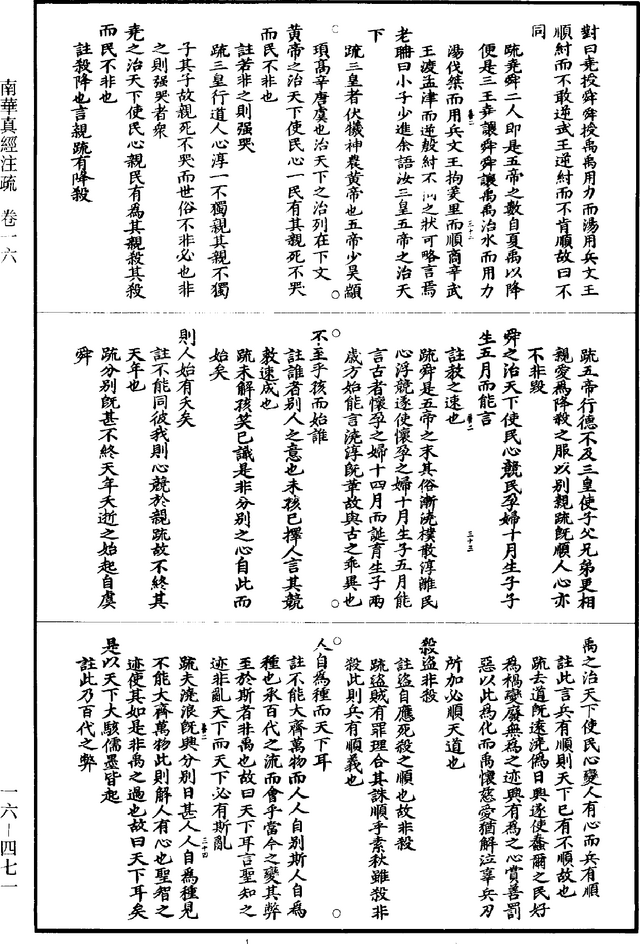 南華真經注疏　卷一六
一六－四七一
對曰堯授舜舜授禹禹用力而湯用兵文王
順紂而不敢逆武王逆紂而不肯順故曰不
同
疏堯舜二人即是五帝之數自夏禹以降
便是三王堯讓舜舜讓禹禹治水而用力
湯伐桀而用兵文王拘羑里而順商辛武
王渡孟津而逆殷紂不同之狀可略言焉
老聃曰小子少進余語汝三皇五帝之治天
下
疏三皇者伏犧神農黃帝也五帝少昊顓
頊高辛唐虞也治天下之治列在下文
黃帝之治天下使民心一民有其親死不哭
而民不非也
註若非之則强哭
疏三皇行道人心淳一不獨親其親不獨
子其子故親死不哭而世俗不非必也非
之則强哭者衆
堯之治天下使民心親民有為其親殺其殺
而民不非也
註殺降也言親疏有降殺
疏五帝行德不及三皇使子父兄弟更相
親愛為降殺之服以別親疏既順人心亦
不非毀
舜之治天下使民心競民孕婦十月生子子
生五月而能言
註教之速也
疏舜是五帝之末其俗漸澆樸散淳離民
心浮競遂使懷孕之婦十月生子五月能
言古者懷孕之婦十四月而誕育生子兩
歲方始能言澆淳既革故與古之乖異也
不至乎孩而始誰
註誰者別人之意也未孩已擇人言其競
教速成也
疏未解孩笑已識是非分別之心自此而
始矣
則人始有夭矣
註不能同彼我則心競於親疏故不終其
天年也
疏分別既甚不終天年夭逝之始起自虞
舜
禹之治天下使民心變人有心而兵有順
註此言兵有順則天下已有不順故也
疏去道既遠澆偽日興遂使蠢爾之民好
為禍變廢無為之迹興有為之心賞善罰
惡以此為化而禹懷慈愛猶解泣辜兵刃
所加必順天道也
殺盜非殺
註盜自應死殺之順也故非殺
疏盜賊有罪理合其誅順乎素秋雖殺非
殺此則兵有順義也
人自為種而天下耳
註不能大齊萬物而人人自別斯人自為
種也承百代之流而會乎當今之變其弊
至於斯者非禹也故曰天下耳言聖知之
迹非亂天下而天下必有斯亂
疏夫澆浪既興分別日甚人人自為種見
不能大齊萬物此則解人有心也聖智之
迹使其如是非禹之過也故曰天下耳矣
是以天下大駭儒墨皆起
註此乃百代之弊